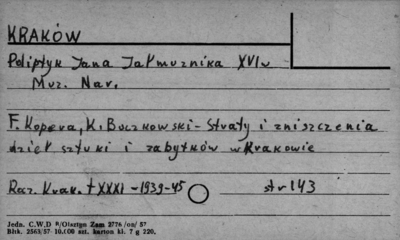 KRAKÓW
Poliptyk Jana Jałmużnika XVI w
Muz. Nar.
F. Kopera, K. Buczkowski - Straty i zniszczenia
dzieł sztuki i zabytków w Krakowie
Roz. Krak. t XXXI - 1939-45 str 143
Jedn. C.W.D /Olsztyn Zam 2776 /on/ 57
Blbk. 2563/57 10.000 szt. karton kl. 7 g 220.